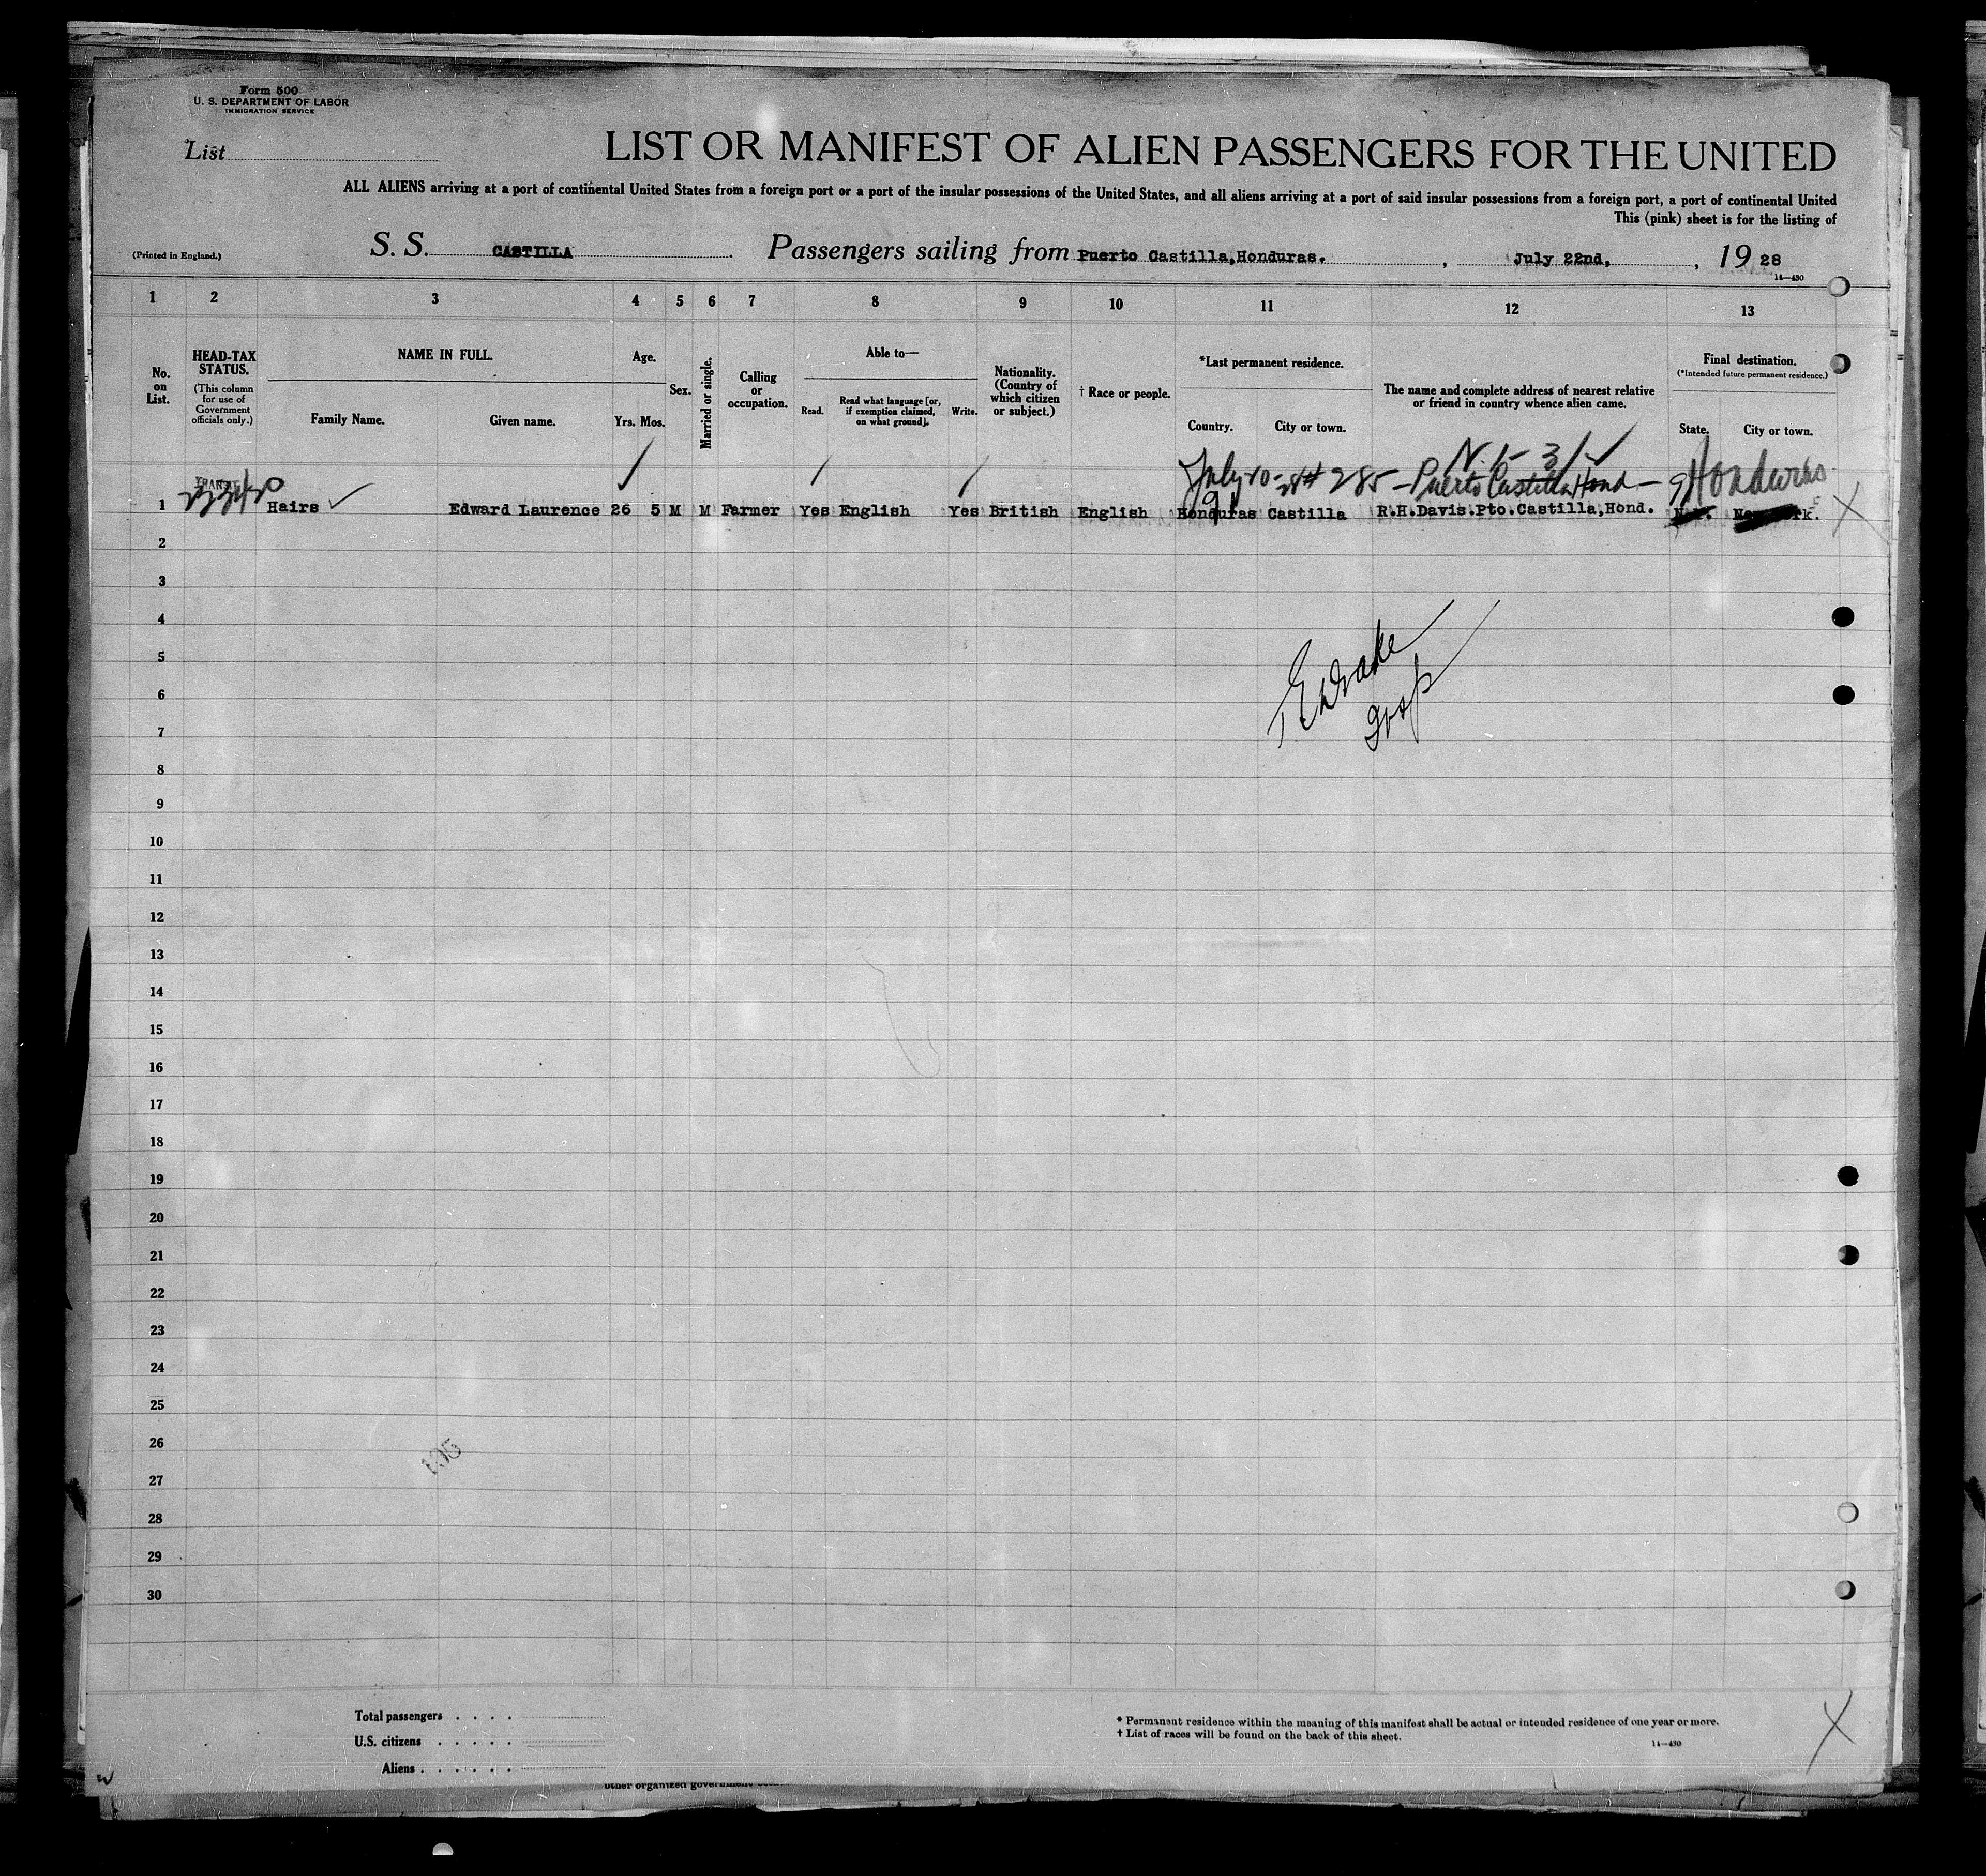 Form 500
U. S. DEPARTMENT OF LABOR
IMMIGRATION SERVICE
List
LIST OR MANIFEST OF ALIEN PASSENGERS FOR THE UNITED
ALL ALIENS arriving at a port of continental United States from a foreign port or a port of the insular possessions of the United States, and all aliens arriving at a port of said insular possessions from a foreign port, a port of continental United
This (pink) sheet is for the listing of
(Printed in England.)
S. S. CASTILLA. Passengers sailing from Puerto Castilla,Honduras. , July 22nd, , 19 28
14—430
1 2 3 4 5 6 7 8 9 10 11 12 13
No. on List.
HEAD-TAX STATUS.
(This column for use of Government officials only.)
NAME IN FULL.
Family Name. Given name.
Age.
Yrs. Mos.
Sex.
Married or single.
Calling or occupation.
Able to—
Read. Read what language [or, if exemption claimed, on what ground]. Write.
Nationality. (Country of which citizen or subject.)
† Race or people.
*Last permanent residence.
Country. City or town.
The name and complete address of nearest relative or friend in country whence alien came.
Final destination.
(*Intended future permanent residence.)
State. City or town.
July 10-28 # 285 - Puerto Castilla Hond - Honduras
1 Hairs Edward Laurence 26 5 M M Farmer Yes English Yes British English Honduras Castilla R.H.Davis.Pto.Castilla,Hond.
2
3
4
5
6
7
8
9
10
11
12
13
14
15
16
17
18
19
20
21
22
23
24
25
26
27
28
29
30
105
Total passengers . . . .
U.S. citizens . . . . .
Aliens . . . . . .
* Permanent residence within the meaning of this manifest shall be actual or intended residence of one year or more.
† List of races will be found on the back of this sheet.
14—430
other organized government